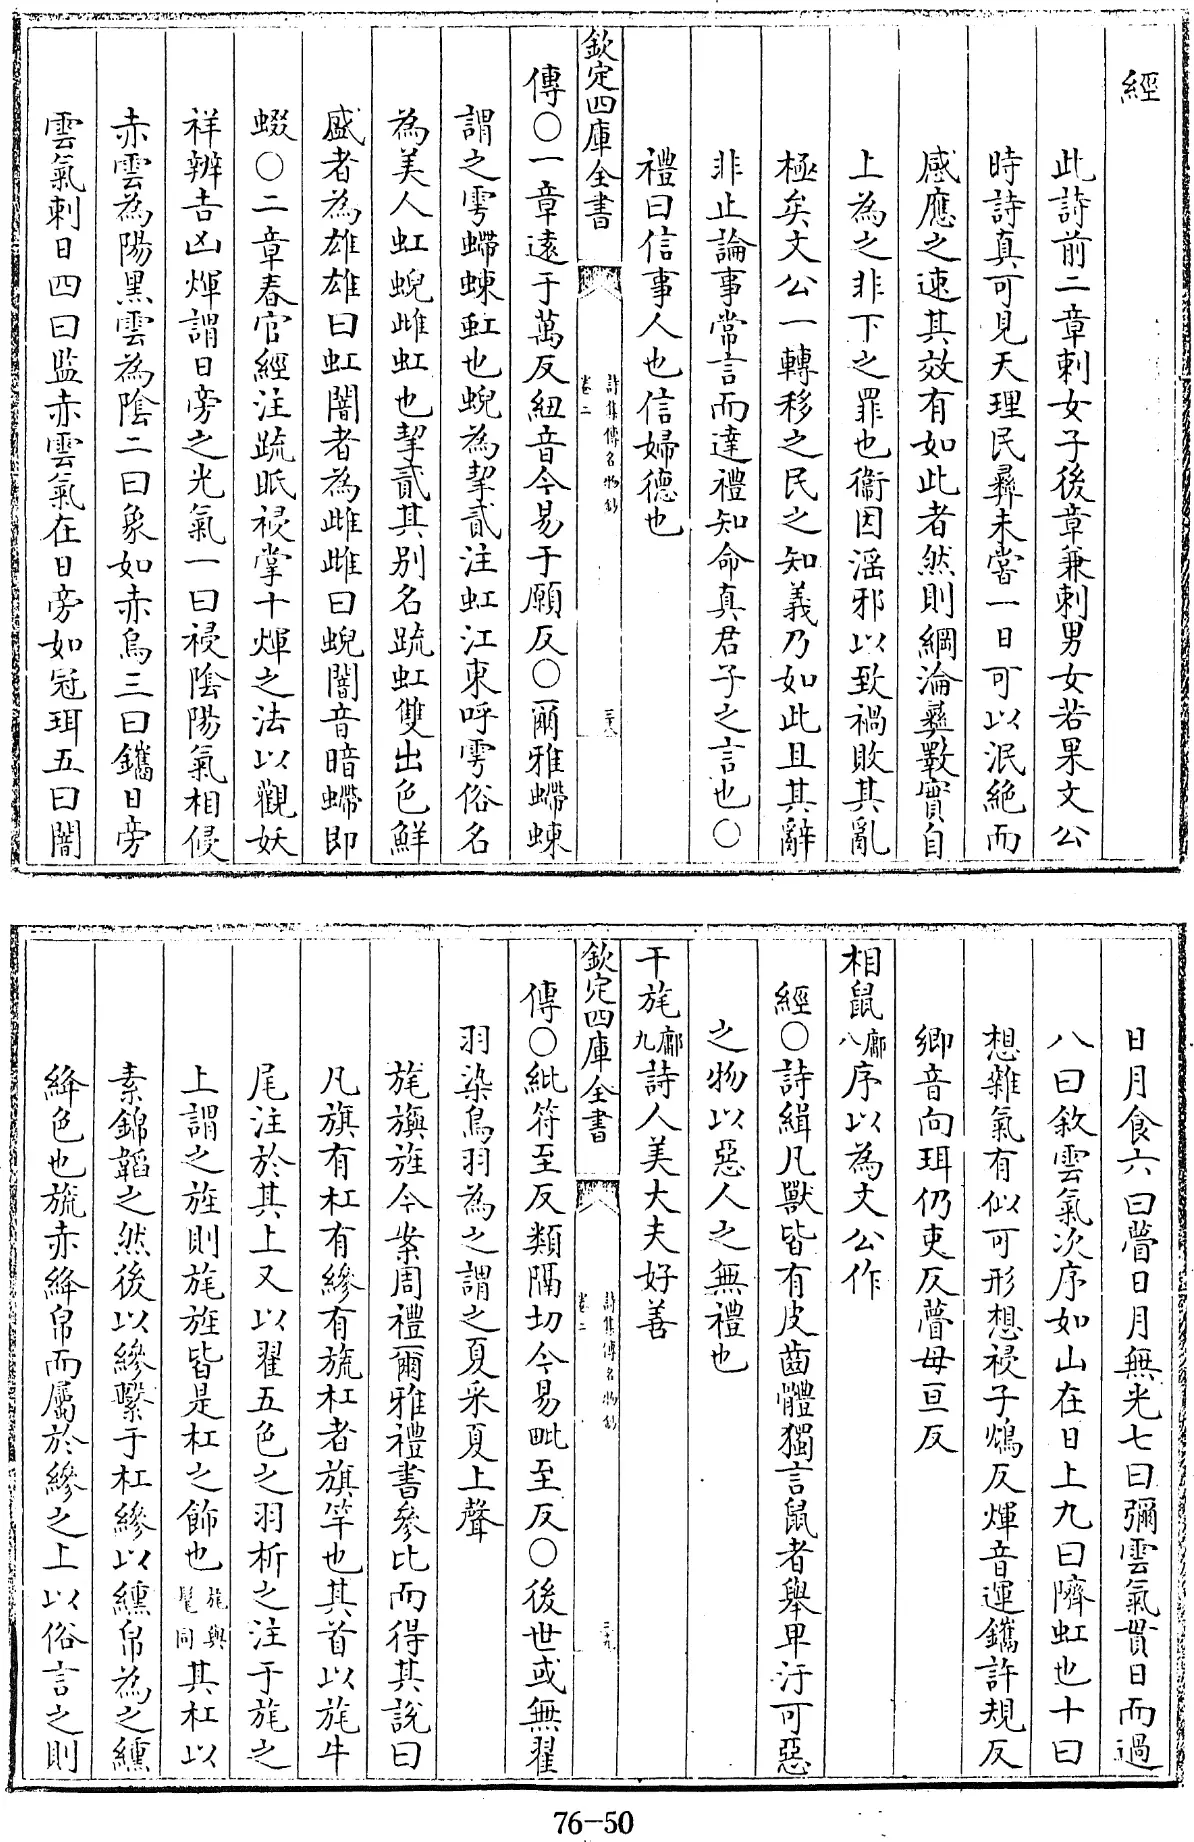 經
此詩前二章刺女子後章兼刺男女若果文公
時詩真可見天理民彞未嘗一日可以泯絶而
感應之速其效有如此者然則綱淪彞斁實自
上為之非下之罪也衞因滛邪以致禍敗其亂
極矣文公一轉移之民之知義乃如此且其辭
非止論事常言而達禮知命真君子之言也○
禮曰信事人也信婦德也
欽定四庫全書
詩集傳名物鈔
卷二
三十八
傳○一章逺于萬反紐音今易于願反○爾雅螮蝀
謂之雩螮蝀虹也蜺為挈貳注虹江東呼雩俗名
為美人虹蜺雌虹也挈貳其别名疏虹雙出色鮮
盛者為雄雄曰虹闇者為雌雌曰蜺闇音暗螮即
蝃○二章春官經注疏眂祲掌十煇之法以觀妖
祥辨吉凶煇謂日旁之光氣一曰祲陰陽氣相侵
赤雲為陽黒雲為隂二曰象如赤烏三曰鑴日旁
雲氣刺日四曰監赤雲氣在日旁如冠珥五曰闇
日月食六曰瞢日月無光七曰彌雲氣貫日而過
八曰敘雲氣次序如山在日上九曰隮虹也十曰
想雜氣有似可形想祲子鴆反煇音運鑴許規反
鄉音向珥仍吏反瞢母亘反
相鼠鄘八序以為文公作
經○詩緝凡獸皆有皮齒體獨言鼠者舉卑汙可惡
之物以惡人之無禮也
干旄鄘九詩人美大夫好善
欽定四庫全書
詩集傳名物鈔
卷二
三十九
傳○紕符至反類隔切今易毗至反○後世或無翟
羽染鳥羽為之謂之夏采夏上聲
旄旟旌今案周禮爾雅禮書參比而得其說曰
凡旗有杠有縿有旒杠者旗竿也其首以旄牛
尾注於其上又以翟五色之羽析之注于旄之
上謂之旌則旄旌皆是杠之飾也旄與髦同其杠以
素錦韜之然後以縿繫于杠縿以纁帛為之纁
絳色也旒赤絳帛而屬於縿之上以俗言之則
76-50